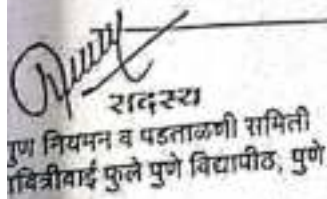 सदस्य
नियमन व पडताळणी समिती
फुले पुणे विद्यापीठ, पुणे